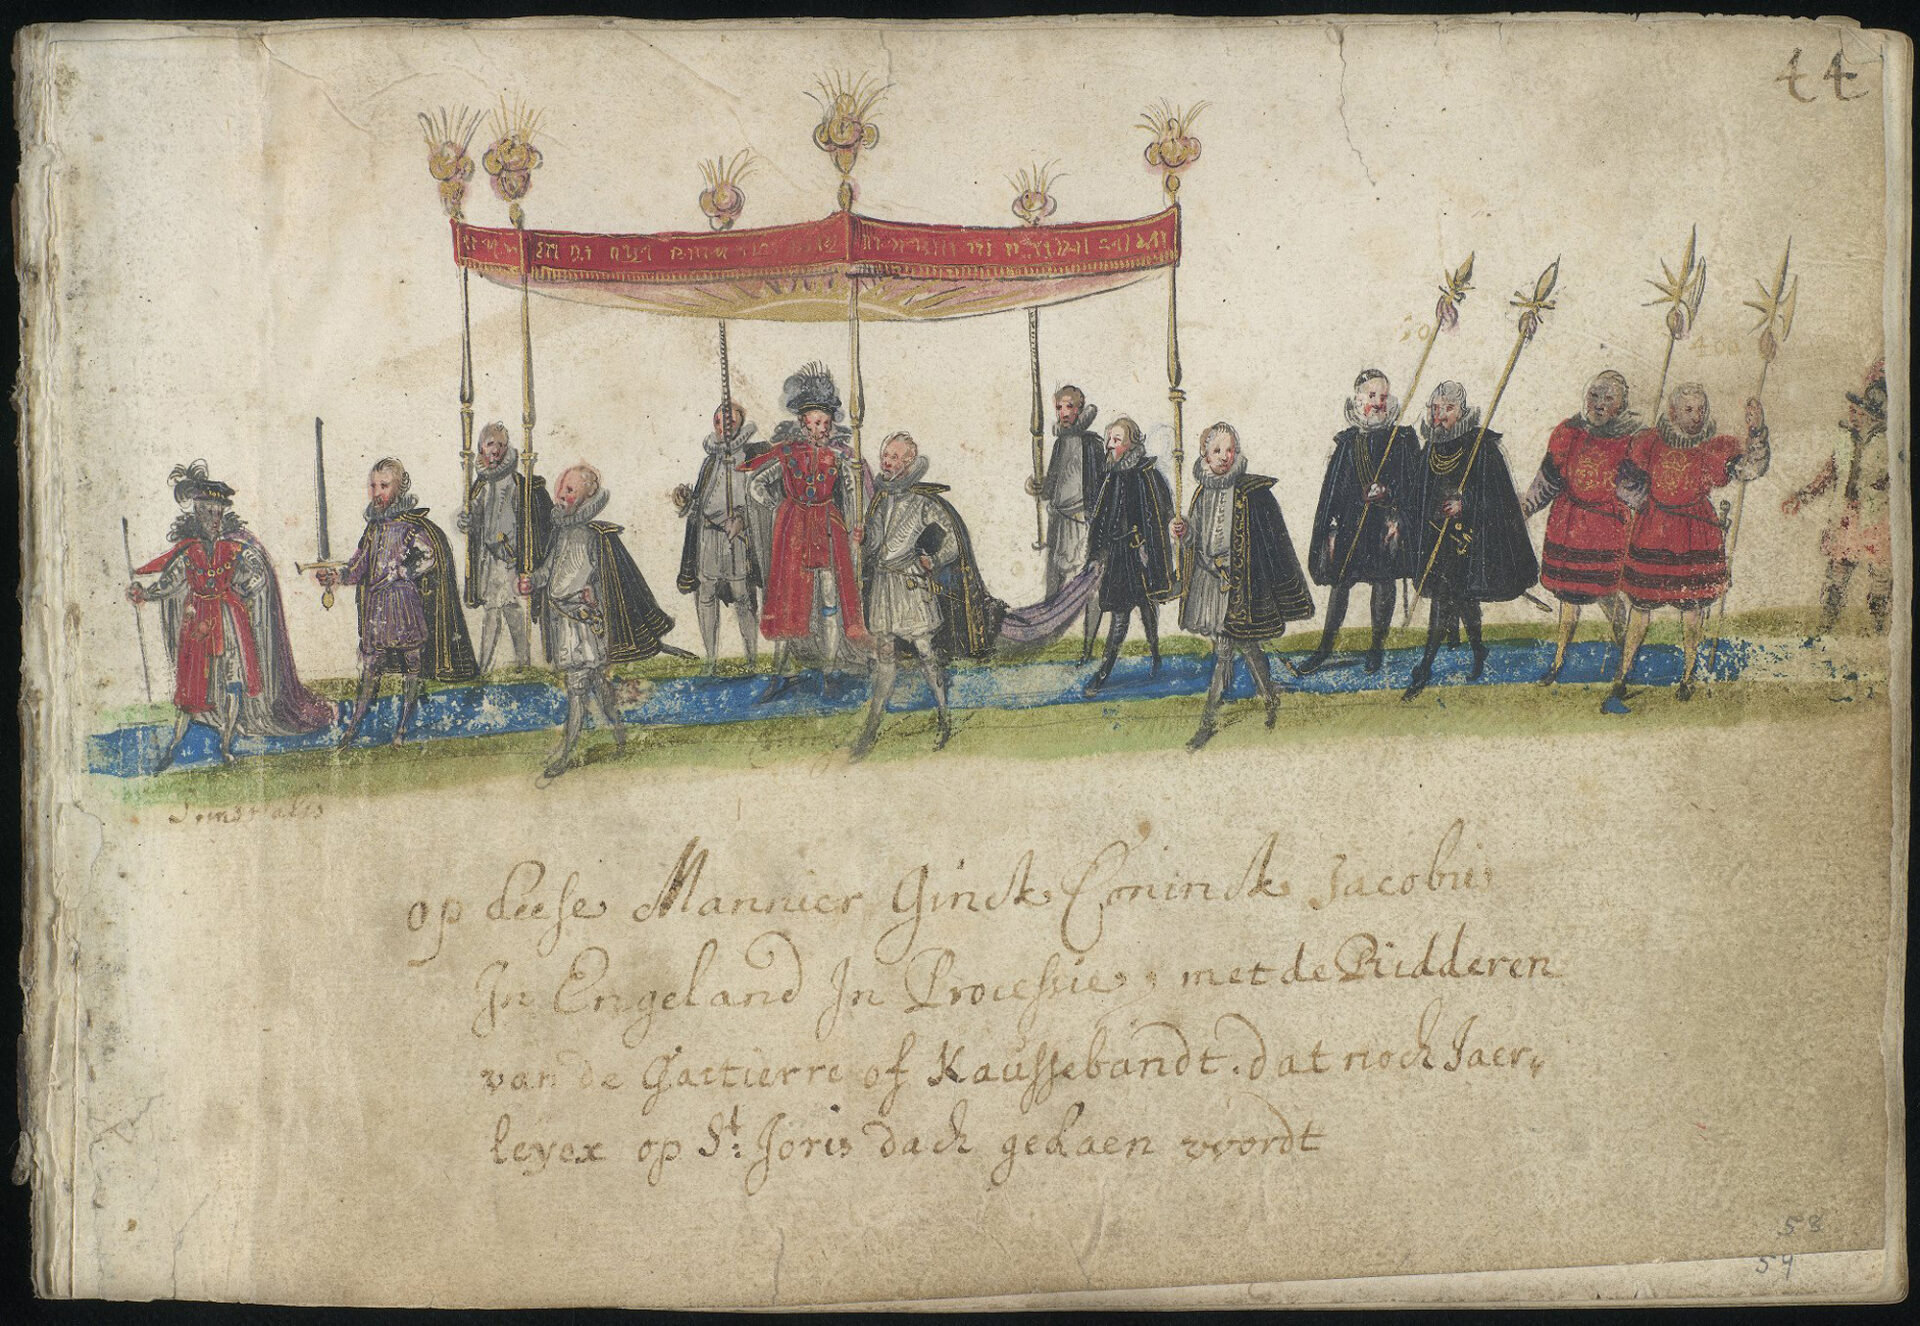 44
50
400
op deese Mannier Ginck Coninck Jacobus
In Engeland In Processie, met de Ridderen
van de Gartierre of Kaussebandt. dat noch Jaer„
leyex op St: Joris dach gedaen wordt
58
59